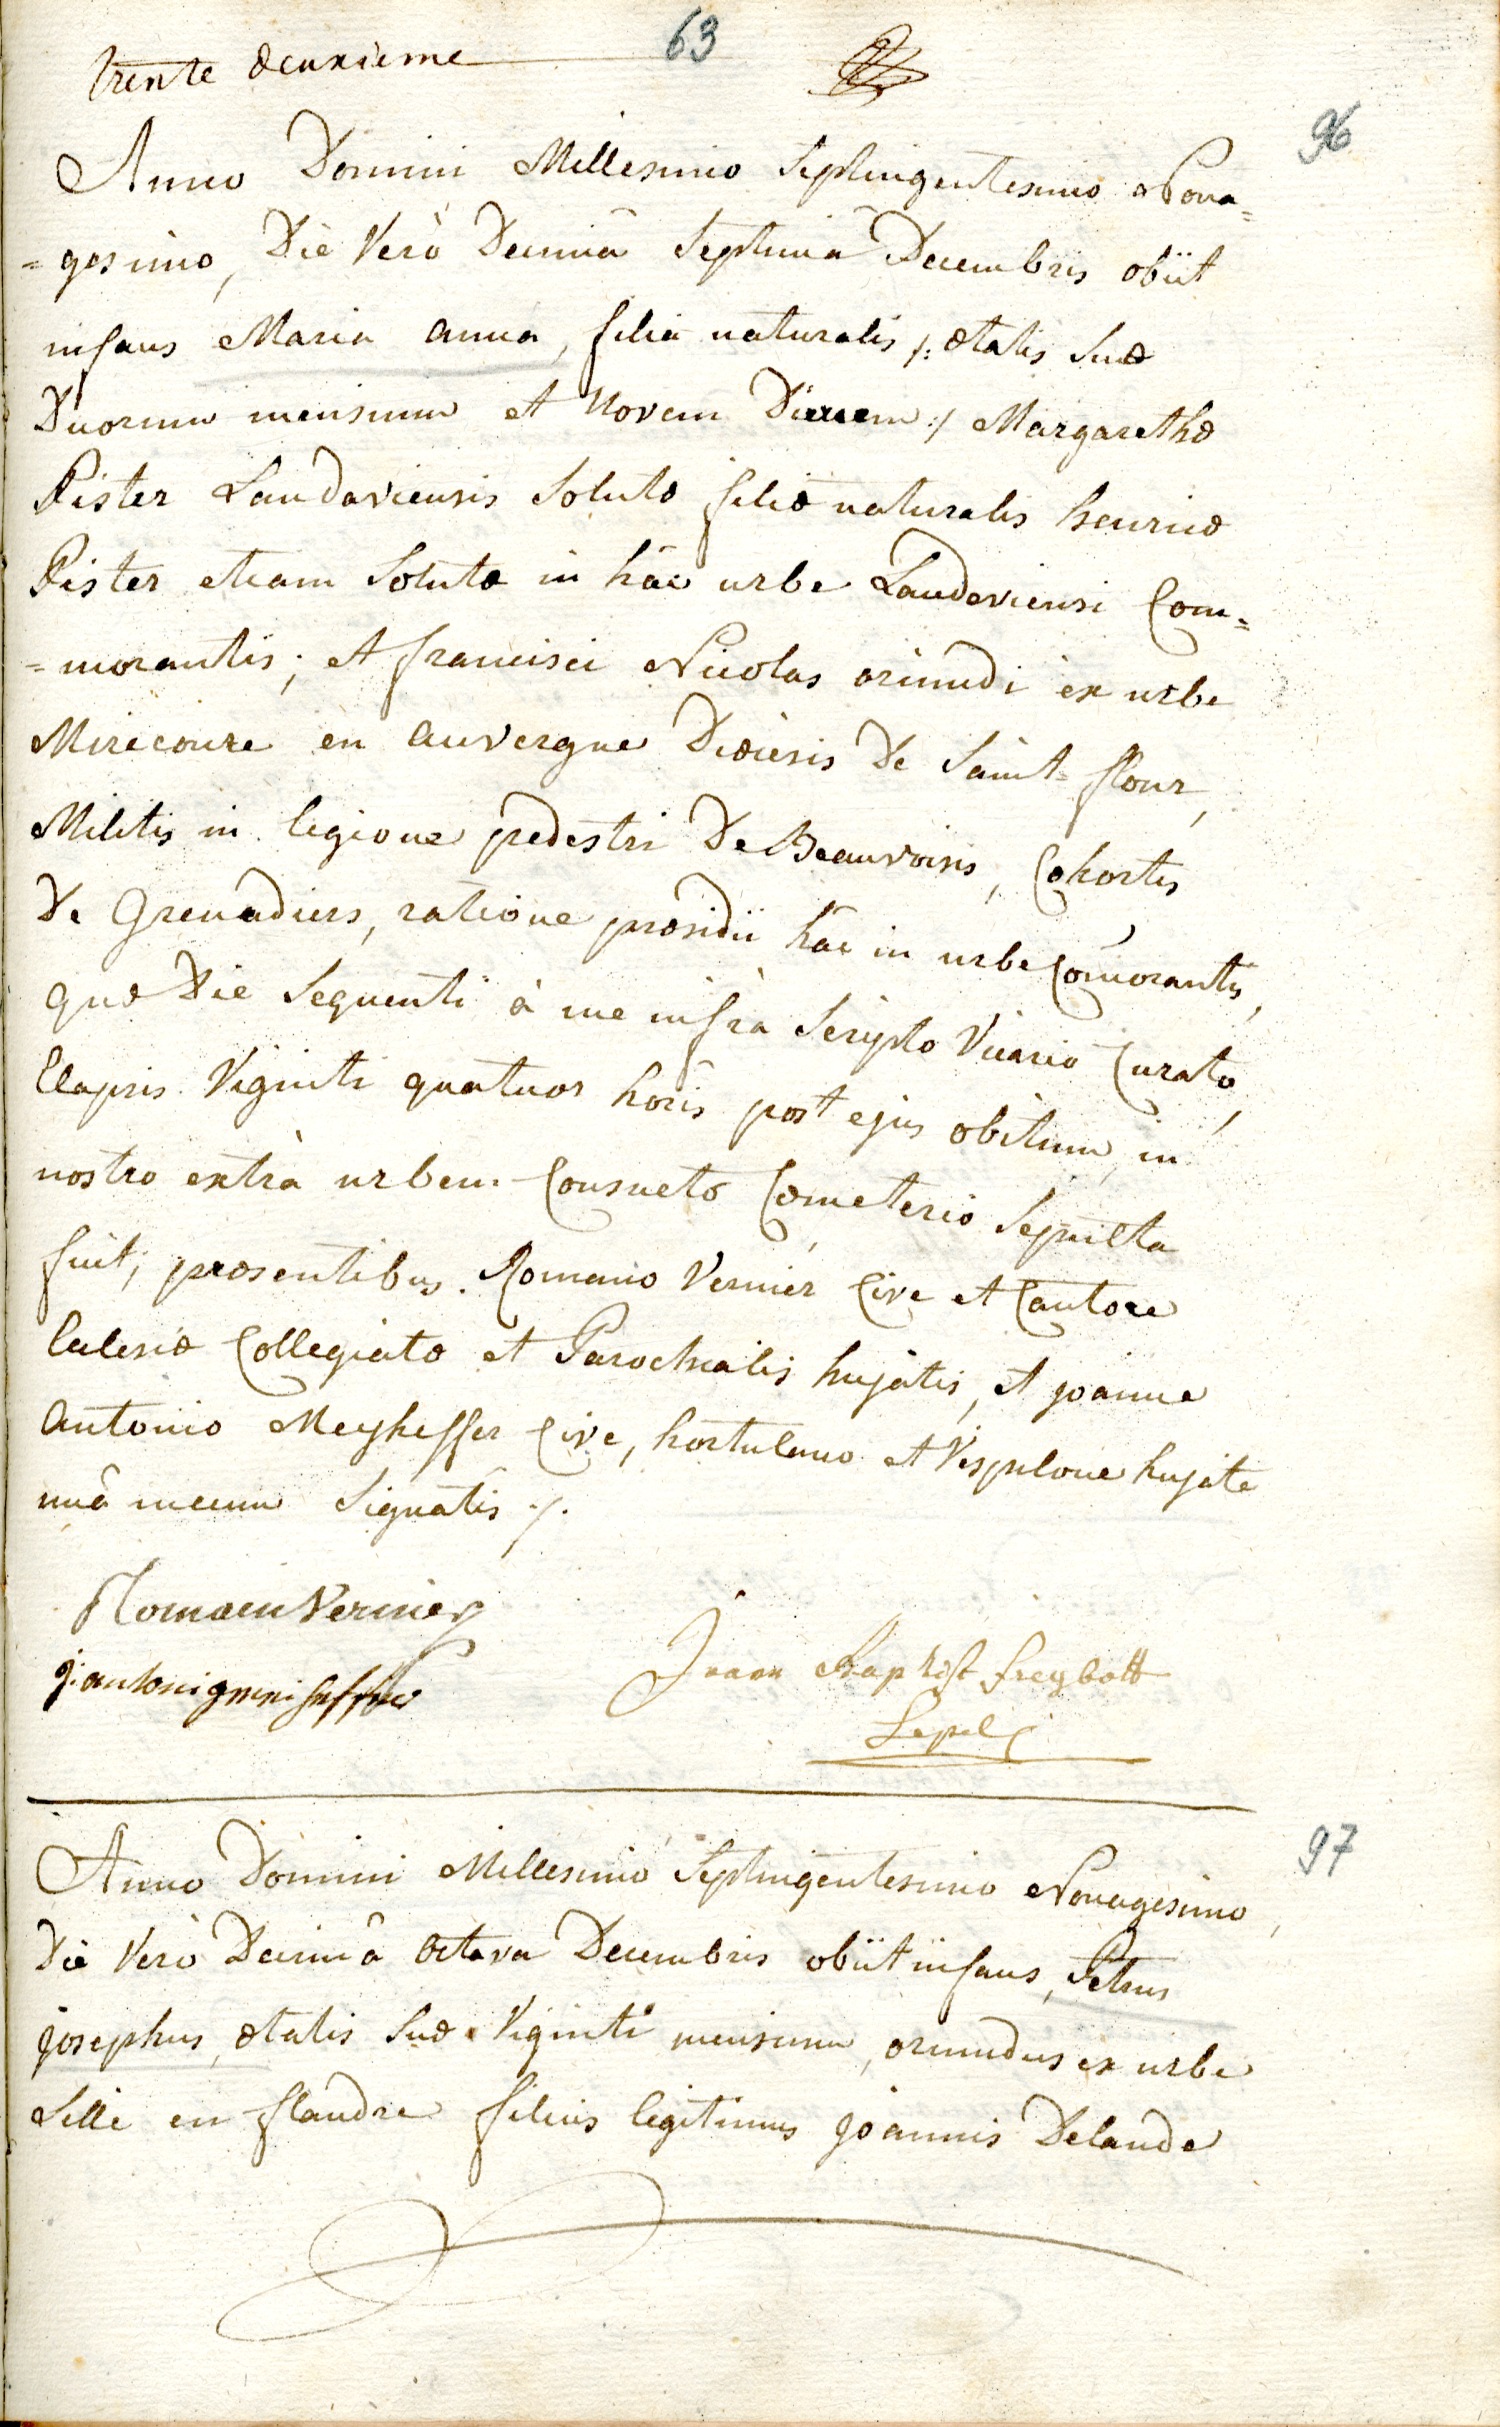 trente deuxieme 63
96
Anno Domini Millesimo Septingentesimo Nona=
=gesimo, Die Verò Decimâ Septimâ Decembris obiit
infans Maria anna, filia naturalis /: ætatis Suæ
Duorum mensium et Novem Dierum :/ Margarethæ
Pister Landaviensis Solutæ filiæ naturalis henricæ
Pister etiam Solutæ in hâc urbe Landaviensi Com=
=morantis; et francisci Nicolas oriundi ex urbe
Mirecoure en auvergne Diœcesis De Saint=flour,
Militis in legione pedestri De Beauvoisis, Cohortis
De Grenadiers, ratione præsidii hâc in urbe Com̄orantis,
quæ Die Sequenti à me infrà Scripto Vicario Curato,
Elapsis Viginti quatuor horis post ejus obitum, in
nostro extrà urbem Consueto Cœmeterio Sepulta
fuit; præsentibus Romano Vernier Cive et Cantore
Eclesiæ Collegiatæ et Parochialis hujatis, et joanne
antonio Meyheffer Cive, hortulano et Vespilone hujate
unâ mecum Signatis ./.
Romain Vernier
Joann Baptist Freybott
97
Anno Domini Millesimo Septingentesimo Nonagesimo,
Die Verò Decimâ octava Decembris obiit infans, Petrus
josephus, ætatis Suæ Viginti mensium, oriundus ex urbe
Lille en flandre filius legitimus joannis Delande